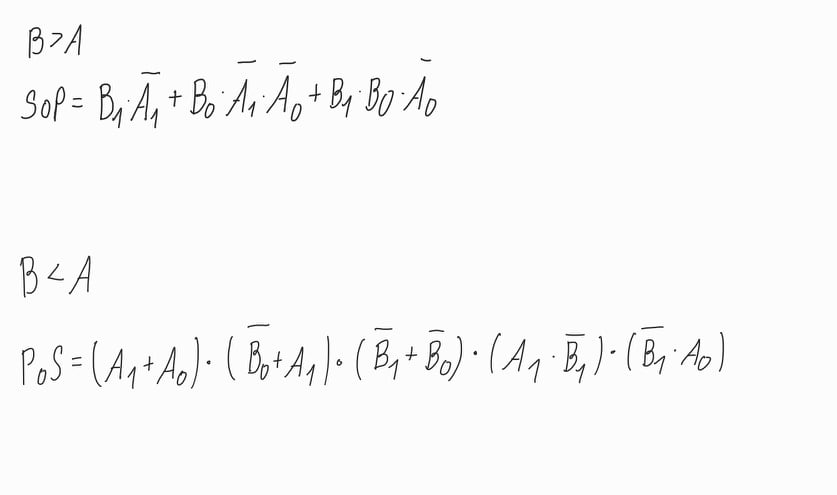 B>A
SoP = B₁·A̅₁ + B₀·A̅₁·A̅₀ + B₁·B0·A̅₀
B<A
PoS = (A₁+A₀)·(B̅₀+A₁)·(B̅₁+B̅₀)·(A₁·B̅₁)·(B̅₁·A₀)